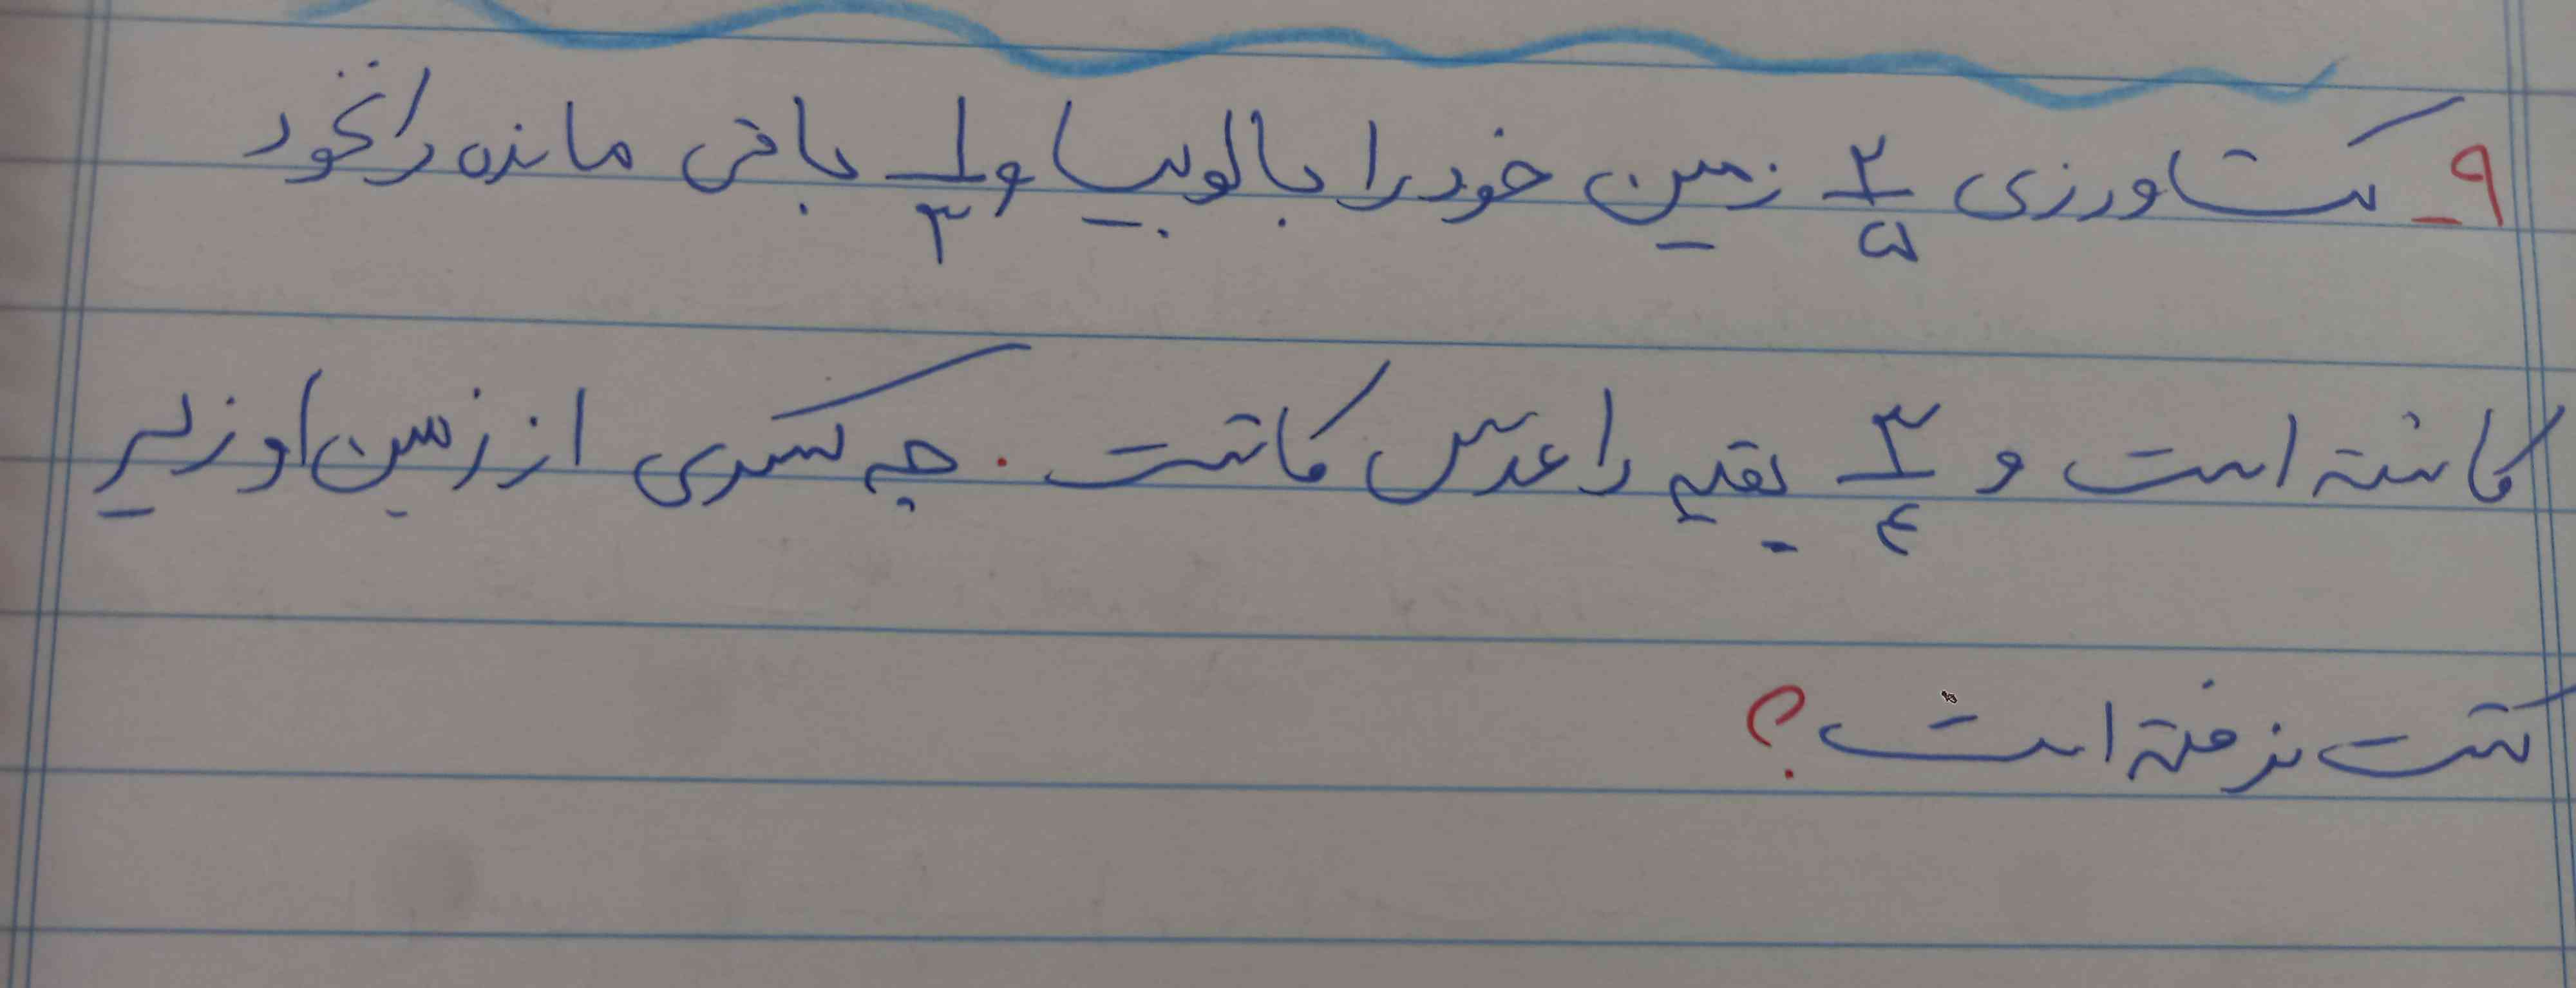 ۹_ کشاورزی ۲/۵ زمین خود را با لوبیا و ۱/۳ باقی مانده را نخود
کاشته است و ۳/۴ بقیه را عدس کاشت . چه کسری از زمین او زیر
کشت نرفته است ؟